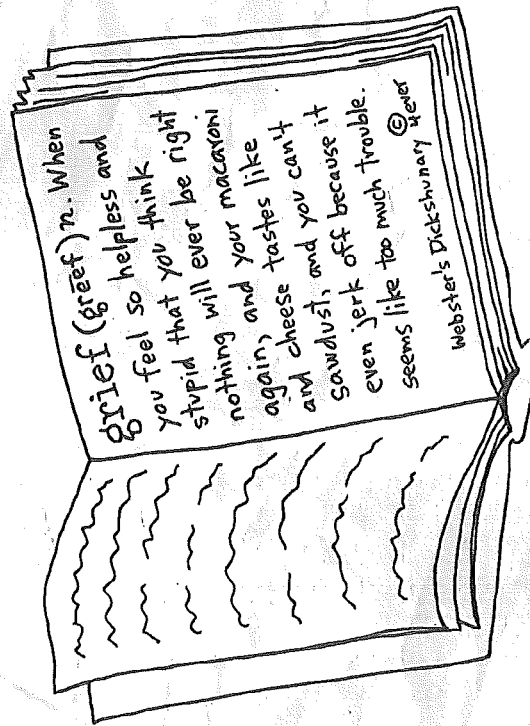 grief (greef) n. When
you feel so helpless and
stupid that you think
nothing will ever be right
again, and your macaroni
and cheese tastes like
sawdust, and you can't
even jerk off because it
seems like too much trouble.
Webster's Dickshunary © 4ever